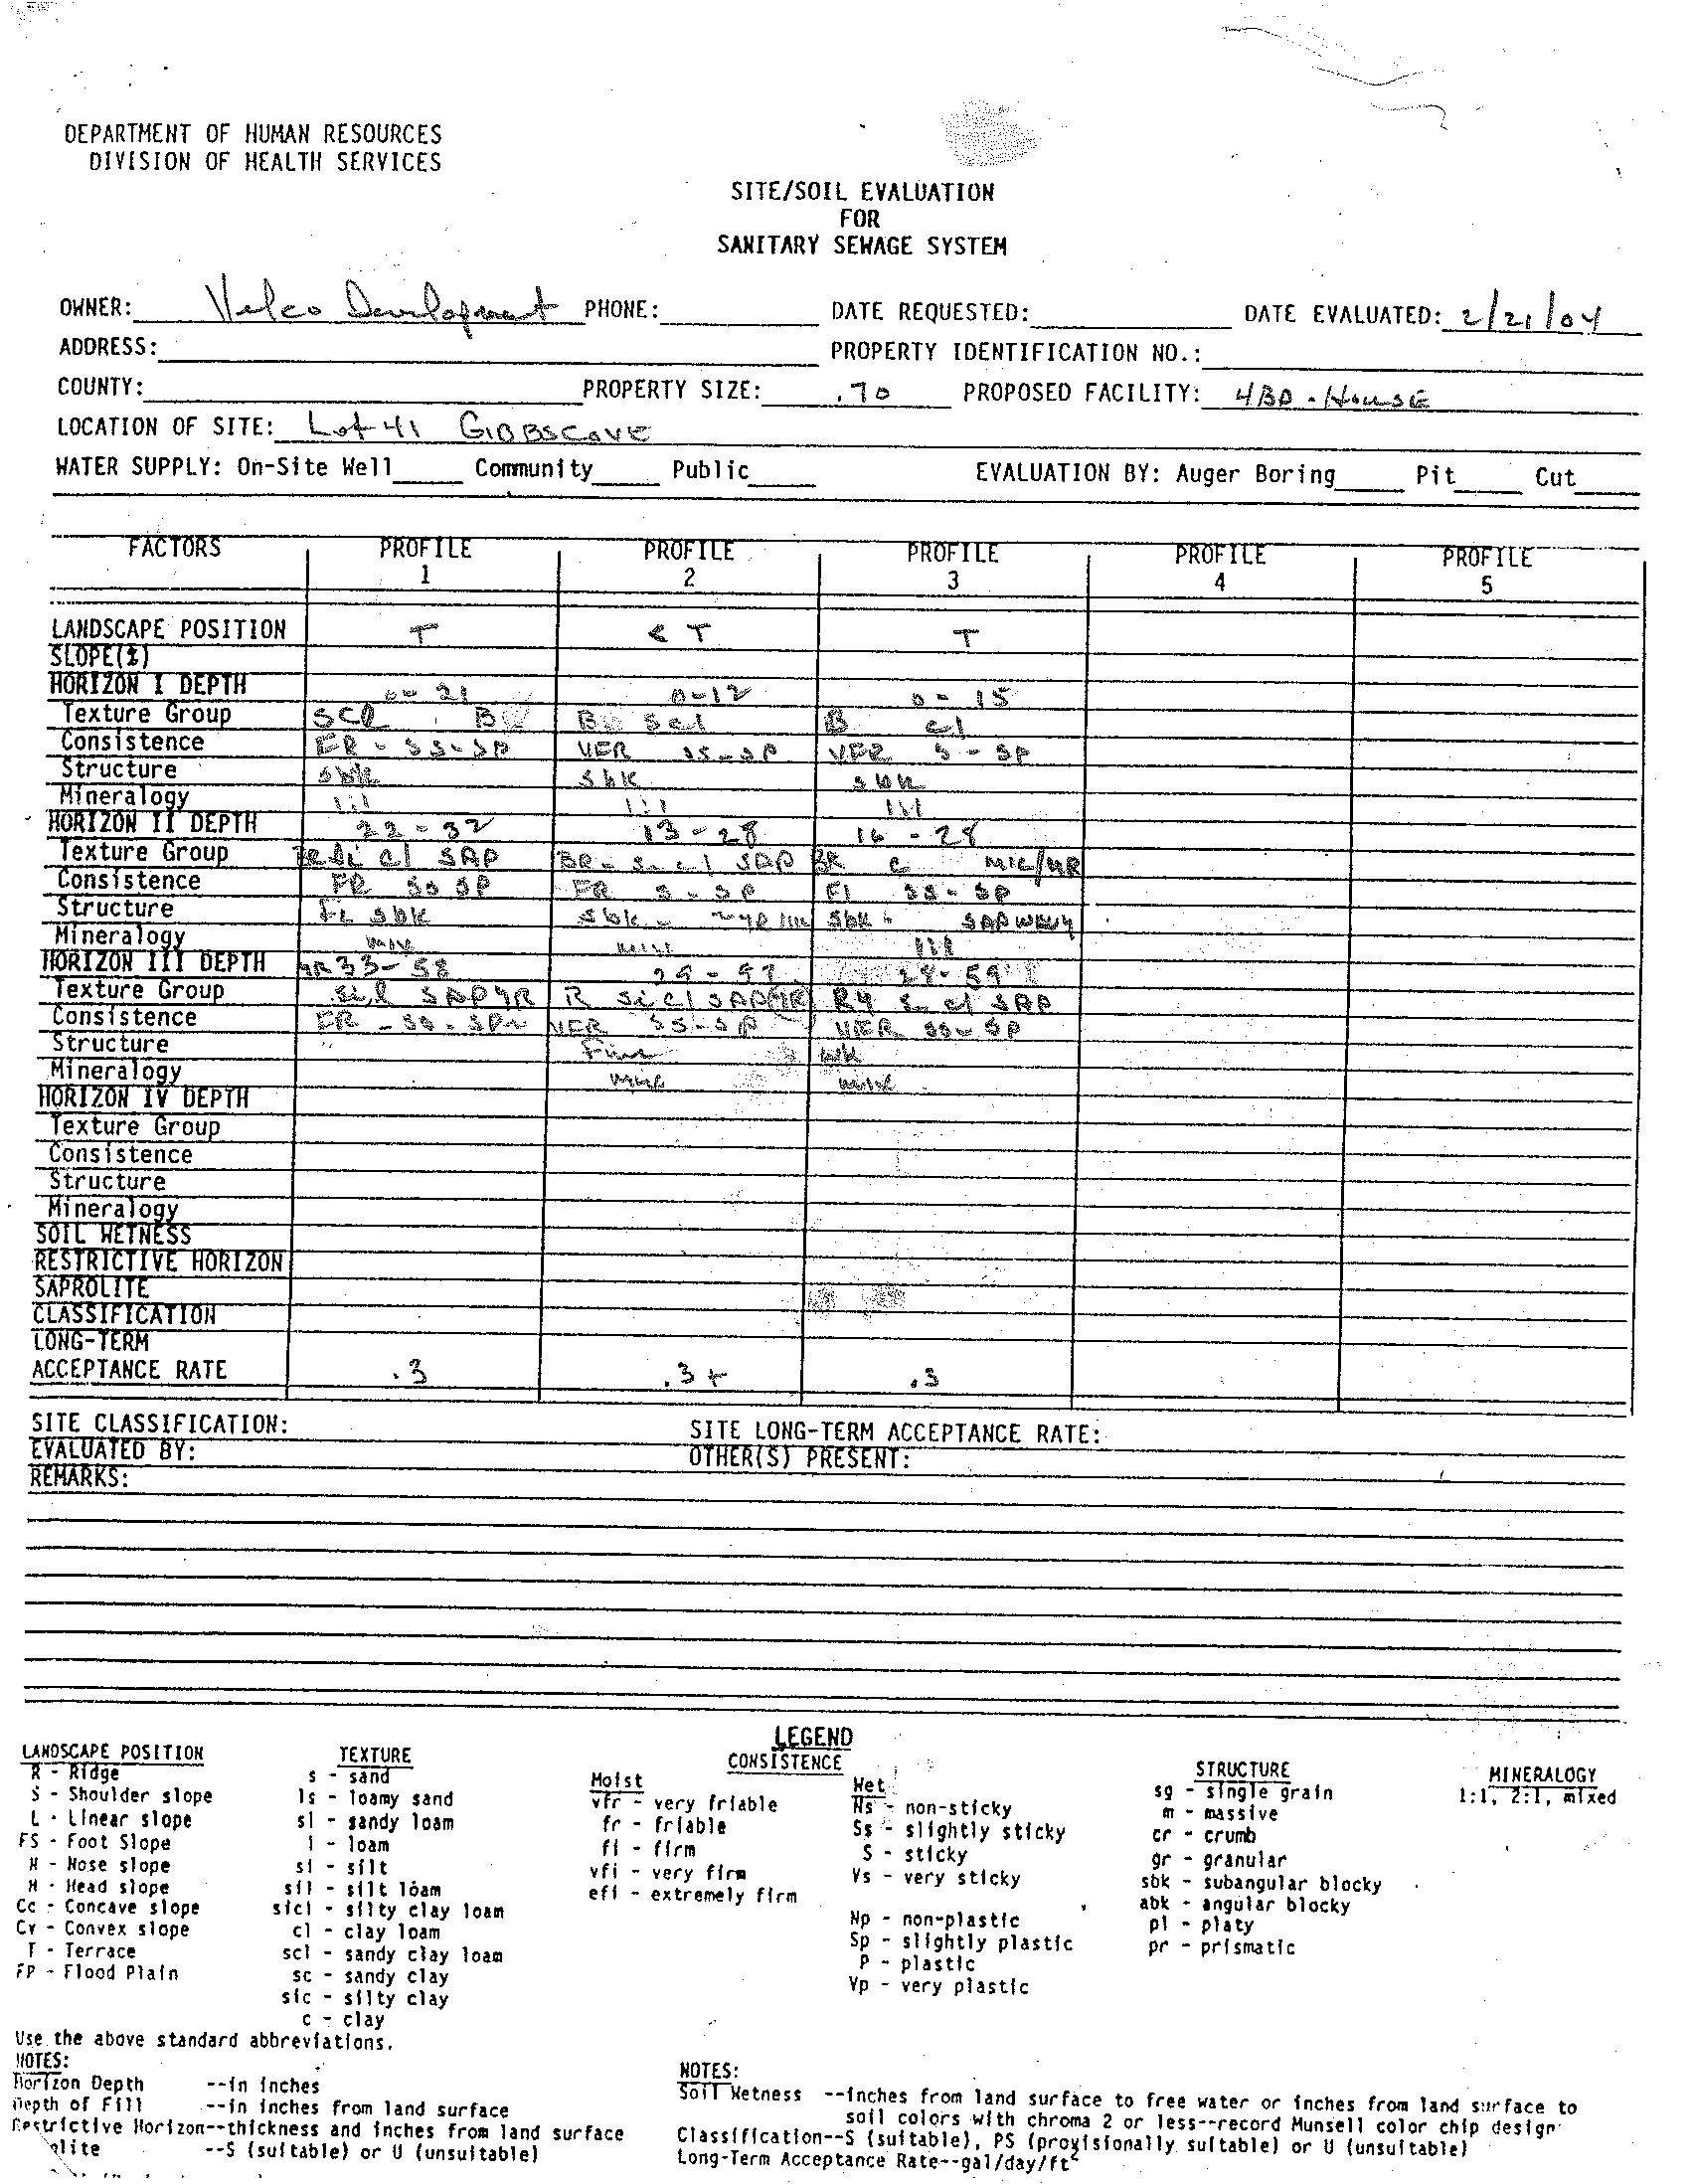 DEPARTMENT OF HUMAN RESOURCES
DIVISION OF HEALTH SERVICES
SITE/SOIL EVALUATION
FOR
SANITARY SEWAGE SYSTEM
OWNER: Development PHONE: DATE REQUESTED: DATE EVALUATED: 2/21/04
ADDRESS: PROPERTY IDENTIFICATION NO.:
COUNTY: PROPERTY SIZE: .70 PROPOSED FACILITY: 4BD. House
LOCATION OF SITE: Lot 41 GIBBSCOVE
WATER SUPPLY: On-Site Well Community Public EVALUATION BY: Auger Boring Pit Cut
FACTORS PROFILE PROFILE PROFILE PROFILE PROFILE
1 2 3 4 5
LANDSCAPE POSITION T T T
SLOPE(%)
HORIZON I DEPTH 0-21 0-12 0-15
Texture Group SCl B B scl B cl
Consistence FR-SS-SP VFR SS-SP VFR S-SP
Structure sbk sbk sbk
Mineralogy 1:1 1:1 1:1
HORIZON II DEPTH 22-32 13-28 16-28
Texture Group cl SAP cl SAP BR c
Consistence FR SS SP FR S-SP FI SS-SP
Structure sbk sbk sbk
Mineralogy 1:1
HORIZON III DEPTH 33-58 28-59
Texture Group sil SAP R sicl SAP cl SAP
Consistence FR-SS-SP VFR SS-SP VFR SS-SP
Structure Fine wk
Mineralogy
HORIZON IV DEPTH
Texture Group
Consistence
Structure
Mineralogy
SOIL WETNESS
RESTRICTIVE HORIZON
SAPROLITE
CLASSIFICATION
LONG-TERM
ACCEPTANCE RATE .3 .3+ .3
SITE CLASSIFICATION: SITE LONG-TERM ACCEPTANCE RATE:
EVALUATED BY: OTHER(S) PRESENT:
REMARKS:
LEGEND
LANDSCAPE POSITION TEXTURE CONSISTENCE STRUCTURE MINERALOGY
R - Ridge s - sand Moist Wet sg - single grain 1:1, 2:1, mixed
S - Shoulder slope ls - loamy sand vfr - very friable Ns - non-sticky m - massive
L - Linear slope sl - sandy loam fr - friable Ss - slightly sticky cr - crumb
FS - Foot Slope l - loam fi - firm S - sticky gr - granular
N - Nose slope si - silt vfi - very firm Vs - very sticky sbk - subangular blocky
H - Head slope sil - silt loam efi - extremely firm abk - angular blocky
Cc - Concave slope sicl - silty clay loam Np - non-plastic pl - platy
Cv - Convex slope cl - clay loam Sp - slightly plastic pr - prismatic
T - Terrace scl - sandy clay loam P - plastic
FP - Flood Plain sc - sandy clay Vp - very plastic
sic - silty clay
c - clay
Use the above standard abbreviations.
NOTES:
Horizon Depth --in inches
Depth of Fill --in inches from land surface
Restrictive Horizon--thickness and inches from land surface
--S (suitable) or U (unsuitable)
NOTES:
Soil Wetness --inches from land surface to free water or inches from land surface to
soil colors with chroma 2 or less--record Munsell color chip design
Classification--S (suitable), PS (provisionally suitable) or U (unsuitable)
Long-Term Acceptance Rate--gal/day/ft²